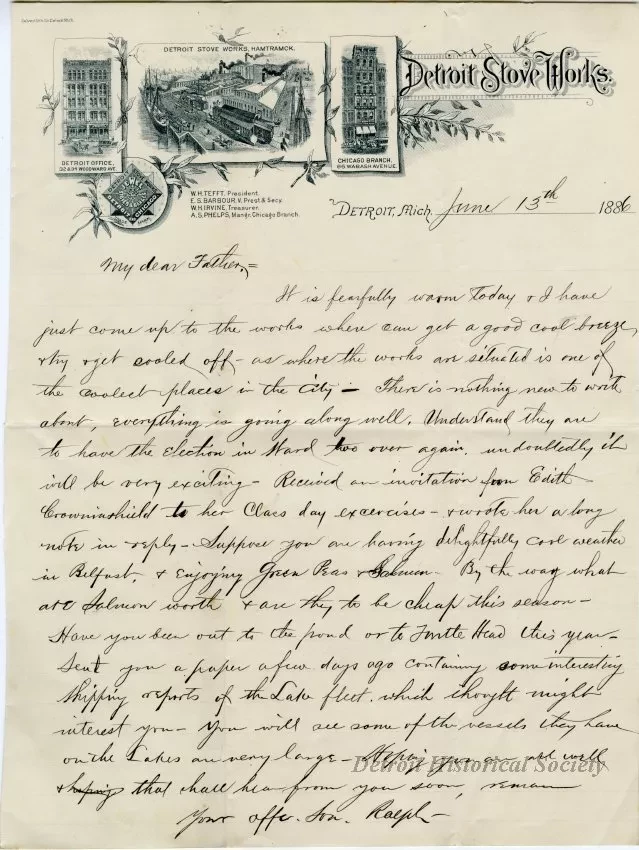 DETROIT STOVE WORKS, HAMTRAMCK.
Detroit Stove Works.
DETROIT OFFICE,
32 & 34 WOODWARD AVE.
CHICAGO BRANCH,
85 WABASH AVENUE.
W.H. TEFFT, President.
E.S. BARBOUR, V. Prest & Secy.
W.H. IRVINE, Treasurer.
A.S. PHELPS, Mangr. Chicago Branch.
DETROIT, Mich. June 13th 1886
My dear Father,=
It is fearfully warm today & I have
just come up to the works where can get a good cool breeze,
& try & get cooled off - as where the works are situated is one of
the coolest places in the city - There is nothing new to write
about, everything is going along well. Understand they are
to have the Election in Ward two over again. undoubtedly it
will be very exciting - Received an invitation from Edith
Crowninshield to her Class day excercises - & wrote her a long
note in reply - Suppose you are having delightfully cool weather
in Belfast, & Enjoying Green Peas & Salmon. By the way what
are Salmon worth & are they to be cheap this season -
Have you been out to the pond or to Turtle Head this year -
Sent you a paper a few days ago containing some interesting
Shipping reports of the Lake fleet. which thought might
interest you - You will see some of the vessels they have
on the Lakes are very large - Hoping you are all well
& hoping that shall hear from you soon, remain
Your affec. Son. Ralph -
Detroit Historical Society